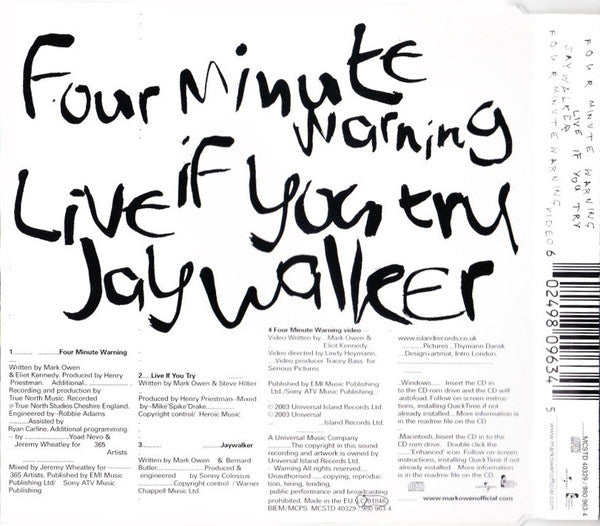 Four Minute
Warning
Live if You try
Jaywalker
1............Four Minute Warning
Written by Mark Owen
& Eliot Kennedy. Produced by Henry
Priestman. Additional.........
Recording and production by
True North Music. Recorded
@True North Studios Cheshire England.
Engineered by Robbie Adams
............Assisted by
Ryan Carline. Additional programming
- by ..................Yoad Nevo &
Jeremy Wheatley for 365
Artists
Mixed by Jeremy Wheatley for ----
365 Artists. Published by EMI Music
Publishing Ltd/ Sony ATV Music
Publishing
2....Live If You Try
Written by Mark Owen & Steve Hillier
Produced by Henry Priestman- Mixed
by-Mike'Spike'Drake
Copyright control/ Heroic Music
3............Jaywalker
Written by Mark Owen & Bernard
Butler..............Produced &
engineered by Sonny Colossus
Copyright control / Warner
Chappell Music Ltd.
4 Four Minute Warning video
Video Written by...Mark Owen &
Eliot Kennedy.
Video directed by Lindy Heymann.
..Video producer Tracey Bass for
Serious Pictures
Published by EMI Music Publishing
Ltd./Sony ATV Music Publishing.
℗ 2003 Universal Island Records Ltd.
© 2003 Universal
Island Records Ltd.
A Universal Music Company
The copyright in this sound
recording and artwork is owned by
Universal Island Records Ltd.
- Warning All rights reserved...
Unauthorised ....copying, reproduc-
tion, hiring, lending,
public performance and broadcasting
prohibited. Made in the EU LC01846
BIEM/MCPS. MCSTD 40329 / 980 963 4
www.islandrecords.co.uk
Pictures .. Thymann Dansk
Design+artmat, Intro London.
..Windows.... Insert the CD in
to the CD rom drive and the CD will
autoplay. Follow on screen instruc-
tions, installing QuickTime if not
already installed.. More information is
in the readme file on the CD
.Macintosh .Insert the CD in to the
CD rom drive. Double click the
....'Enhanced' icon. Follow on screen
instructions, installing QuickTime if not
already installed.... More information
is in the readme file on the CD.
www.markowenofficial.com
FOUR MINUTE WARNING
LIVE IF YOU TRY
JAYWALKER
FOUR MINUTE WARNING VIDEO
6 02498 09634 5
MCSTD 40329 / 980 963 4
www.markowenofficial.com